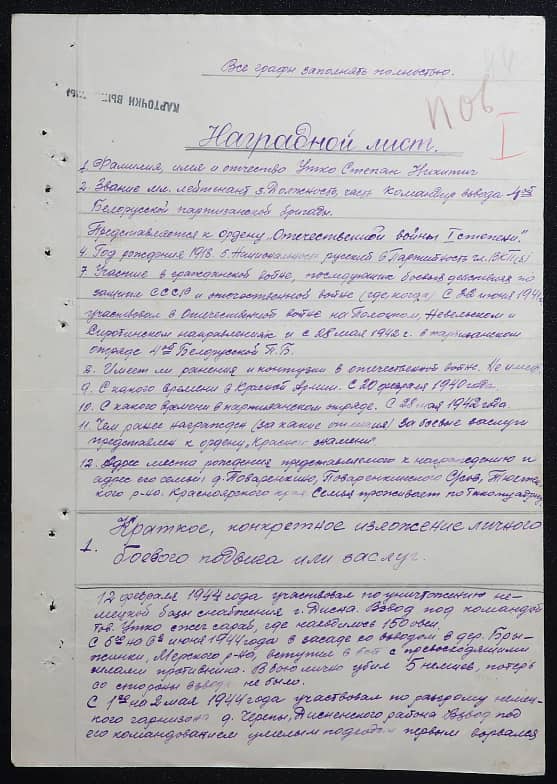 Все графы заполнять полностью.
КАРТОЧКИ
пов
I
Наградной лист.
1. Фамилия, имя и отчество Утко Степан Никитич
2. Звание мл. лейтенант 3. Должность, часть командир взвода 4ой
Белорусской партизанской бригады.
Представляется к ордену "Отечественной войны I степени".
4. Год рождения 1918. 5. Национальность русский 6. Партийность чл. ВКП(б)
7. Участие в гражданской войне, последующих боевых действиях по
защите СССР и отечественной войне (где когда) С 22 июня 1941
участвовал в Отечественной войне на Полоцком, Невельском и
Сиротинском направлениях и с 28 мая 1942 г. в партизанском
отряде 4ой Белорусской П.Б.
8. Имеет ли ранения и контузии в отечественной войне. Не имеет
9. С какого времени в Красной Армии. С 20 февраля 1940 года.
10. С какого времени в партизанском отряде. С 28 мая 1942 года.
11. Чем ранее награжден (за какие отличия) За боевые заслуги
представлен к ордену "Красное знамени"
12. Адрес места рождения представляемого к награждению и
адрес его семьи: д. Поваренкино, Поваренкинского С/сов,
кого р-на. Красноярского края Семья проживает по такому адресу
1. Краткое, конкретное изложение личного
боевого подвига или заслуг.
12 февраля 1944 года участвовал по уничтожению не-
мецкой базы снабжения г. Дисна. Взвод под командой
тов. Утко сжег сарай, где находилось 150 овец.
С 5го на 6е июня 1944 года в засаде со взводом в дер.
Мёрского р-на, вступил в бой с превосходящими
силами противника. В бою лично убил 5 немцев, потерь
со стороны взвода не было.
С 1го на 2 мая 1944 года участвовал по разгрому немец-
кого гарнизона д. Черепы, Дисненского района Взвод под
его командованием умелым подходом первым ворвался